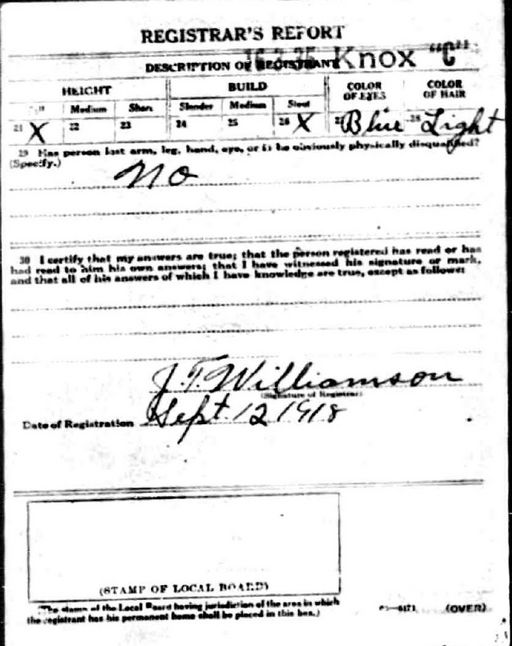 REGISTRAR'S REPORT
16-2-25 Knox "C"
DESCRIPTION OF REGISTRANT
HEIGHT BUILD COLOR OF EYES COLOR OF HAIR
Medium Short Slender Medium Stout
21 X 22 23 24 25 26 X 27 Blue 28 Light
29 Has person lost arm, leg, hand, eye, or is he obviously physically disqualified?
(Specify.)
No
30 I certify that my answers are true; that the person registered has read or has
had read to him his own answers; that I have witnessed his signature or mark,
and that all of his answers of which I have knowledge are true, except as follows:
J. T. Williamson
(Signature of Registrar)
Date of Registration Sept. 12 1918
(STAMP OF LOCAL BOARD)
(The stamp of the Local Board having jurisdiction of the area in which
the registrant has his permanent home shall be placed in this box.)
(OVER)